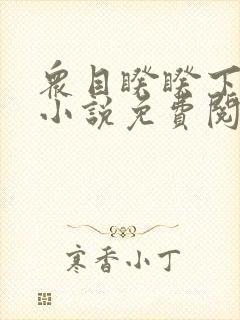 眾目睽睽下
小說免費閱
寒香小丁